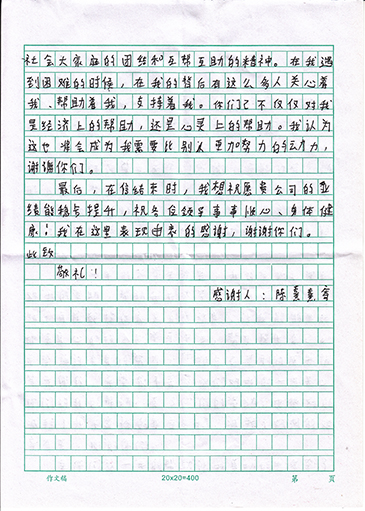 社会大家庭的团结和互帮互助的精神。在我遇
到困难的时候，在我的背后有这么多人关心着
我、帮助着我，支持着我。你们不仅仅对我
是经济上的帮助，还是心灵上的帮助。我认为
这也准会成为我需要比别人更加努力的动力，
谢谢你们。
最后，在信结束时，我想祝愿贵公司的业
绩能稳步提升，祝各位领导事事顺心、身体健
康；我在这里表现由衷的感谢，谢谢你们。
此致
敬礼！
感谢人：陈
作文稿
20x20=400
第 页